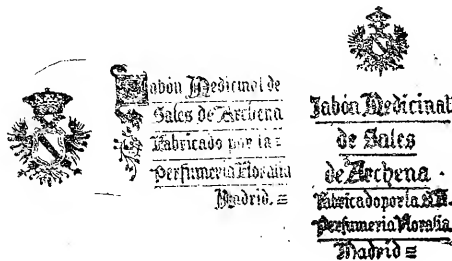 Jabón Medicinal de
Sales de Archena
Fabricado por la =
Perfumeria Floralia
Madrid. =
Jabón Medicinal
de Sales
de Archena .
Fabricado por la
Perfumeria Floralia
Madrid =